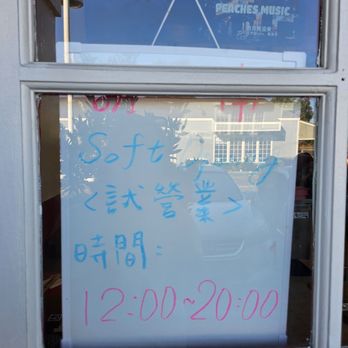 PEACHES MUSIC
Soft
<試營業>
時間:
12:00~20:00